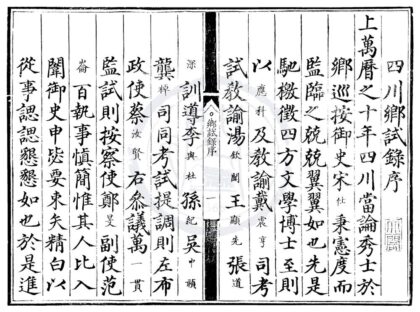 四川鄉試錄序
上萬曆之十年四川當論秀士於
鄉巡按御史宋仕秉憲度而
監臨之兢兢翼翼如也先是
馳檄徵四方文學博士至則
以應科及教諭戴震亨司考
試教諭湯欽聞王顯先張道
鄉試錄序
深訓導李與杜孫紀吳中
龔梓司同考試提調則左布
政使蔡汝賢右叅議萬一貫
監試則按察使鄭旻副使范
崙百執事慎簡惟其人比入
闈御史申毖要束矢精白以
從事諰諰懇懇如也於是進